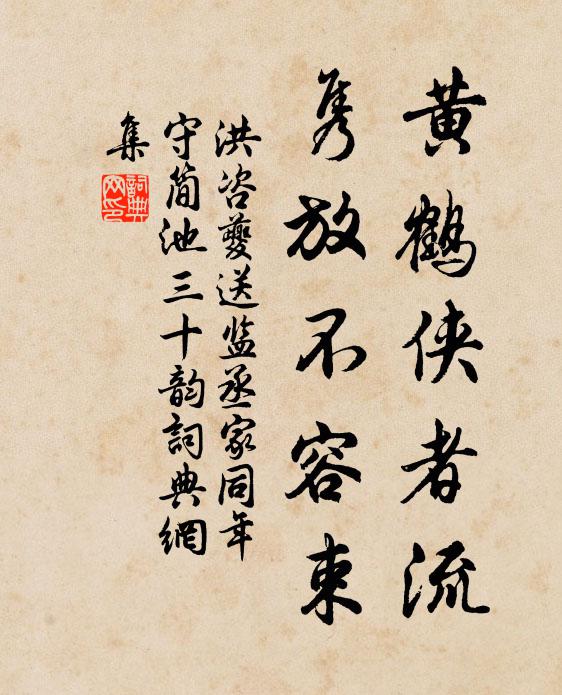 黄鹤侠者流
隽放不容束
洪咨夔送监丞家同年
守简池三十韵詞典網
集
詞典網印